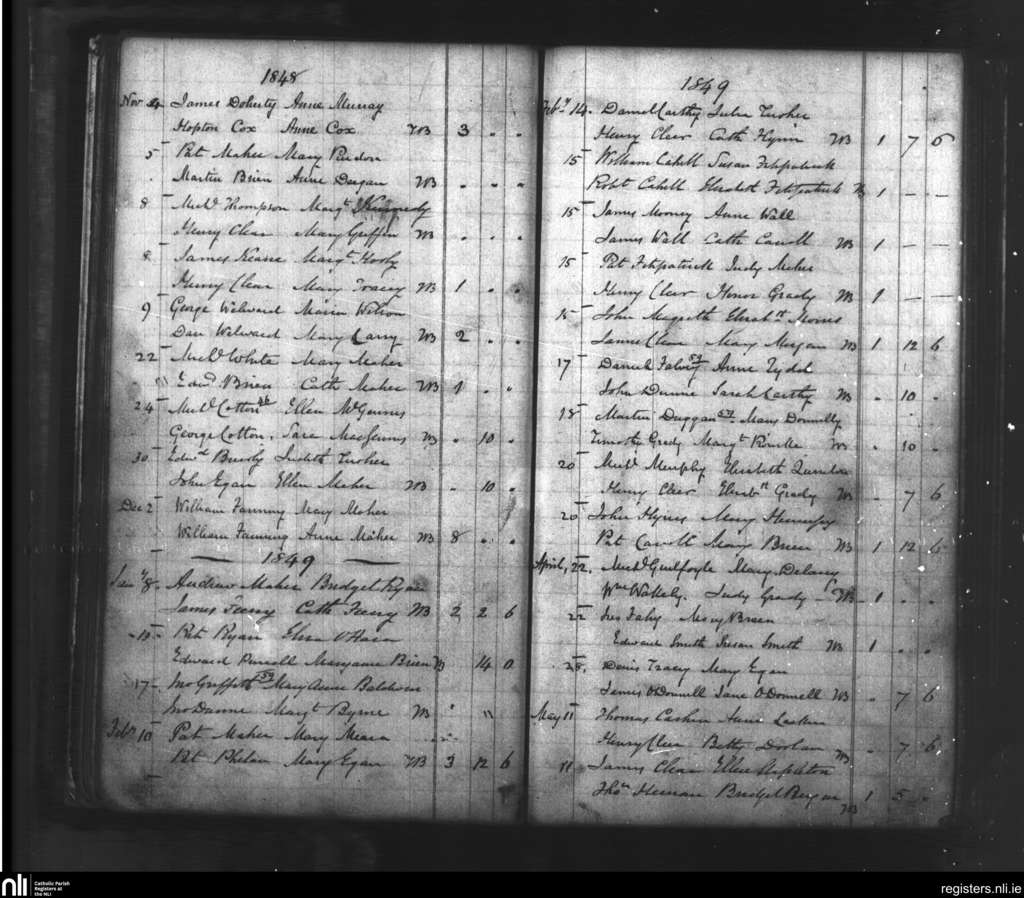 1848
Nov 4. James Doherty Anne Murray
Hopton Cox Anne Cox WB 3 . .
5 Pat Maher Mary
Martin Brien Anne Dugan WB . . .
8 Mich^l Thompson Marg^t Kennedy
Henry Clear Mary Griffin WB . . .
8 James Keane Marg^t
Henry Clear Mary Tracey WB 1 . .
9 George Welward Maria Wilson
Dan Welward Mary WB 2 . .
22 Mich^l White Mary Maher
" Edw^d Brien Cath Maher WB 1 . "
24 Mich^l Cotton Ellen McGennis
George Cotton. Sara WB . 10 .
30 Edw^d Judith
John Egan Ellen Maher WB . 10 .
Dec 2 William Fanning Mary Maher
William Fanning Anne Maher WB 8 . .
1849
Jan^y 8. Andrew Maher Bridget Ryan
James Feeny Cath Feeny WB 2 2 6
10 Pat Ryan Eliza O'Hara
Edward Pursell Maryanne Brien WB 14 0
17 Jno Griffith Mary Anne Baldwin
Jno Dunne Marg^t Byrne WB " "
Feb^y 10 Pat Maher Mary Meara
Pat Phelan Mary Egan WB 3 12 6
1849
Feb^y 14. Daniel Carthy Julia
Henry Clear Cath Flynn WB 1 7 6
15 William Cahill Susan Fitzpatrick
Rob^t Cahill Elizabeth Fitzpatrick WB 1 — —
15 James Mooney Anne Wall
James Wall Cath Carroll WB 1 — —
15 Pat Fitzpatrick Judy Maher
Henry Clear Honor Grady WB 1 — —
15 John Magrath Elizab^th Morris
James Clear Mary WB 1 12 6
17 Daniel Anne
John Dunne Sarah Carthy WB . 10 .
18 Martin Duggan Mary Donnelly
Timothy Grady Marg^t Rourke WB . 10 .
20 Mich^l Murphy Elizabeth Quinlan
Henry Clear Elizab^th Grady WB . 7 6
20 John Hynes Mary Hennessy
Pat Carroll Mary Breen WB 1 12 6
April, 22. Mich^l Guilfoyle Mary Delany
W^m Judy Grady WB 1 . .
22 Jno Fahy Mary Breen
Edward Smith Susan Smith WB 1 . .
28. Denis Tracy Mary Egan
James O'Donnell Jane O'Donnell WB . 7 6
May 11 Thomas Cashin Anne Larkin
Henry Clear Betty Doolan WB . 7 6
11 James Clear Ellen
Tho^s Heenan Bridget Ryan WB 1 5 .
nli Catholic Parish
Registers at
the NLI
registers.nli.ie